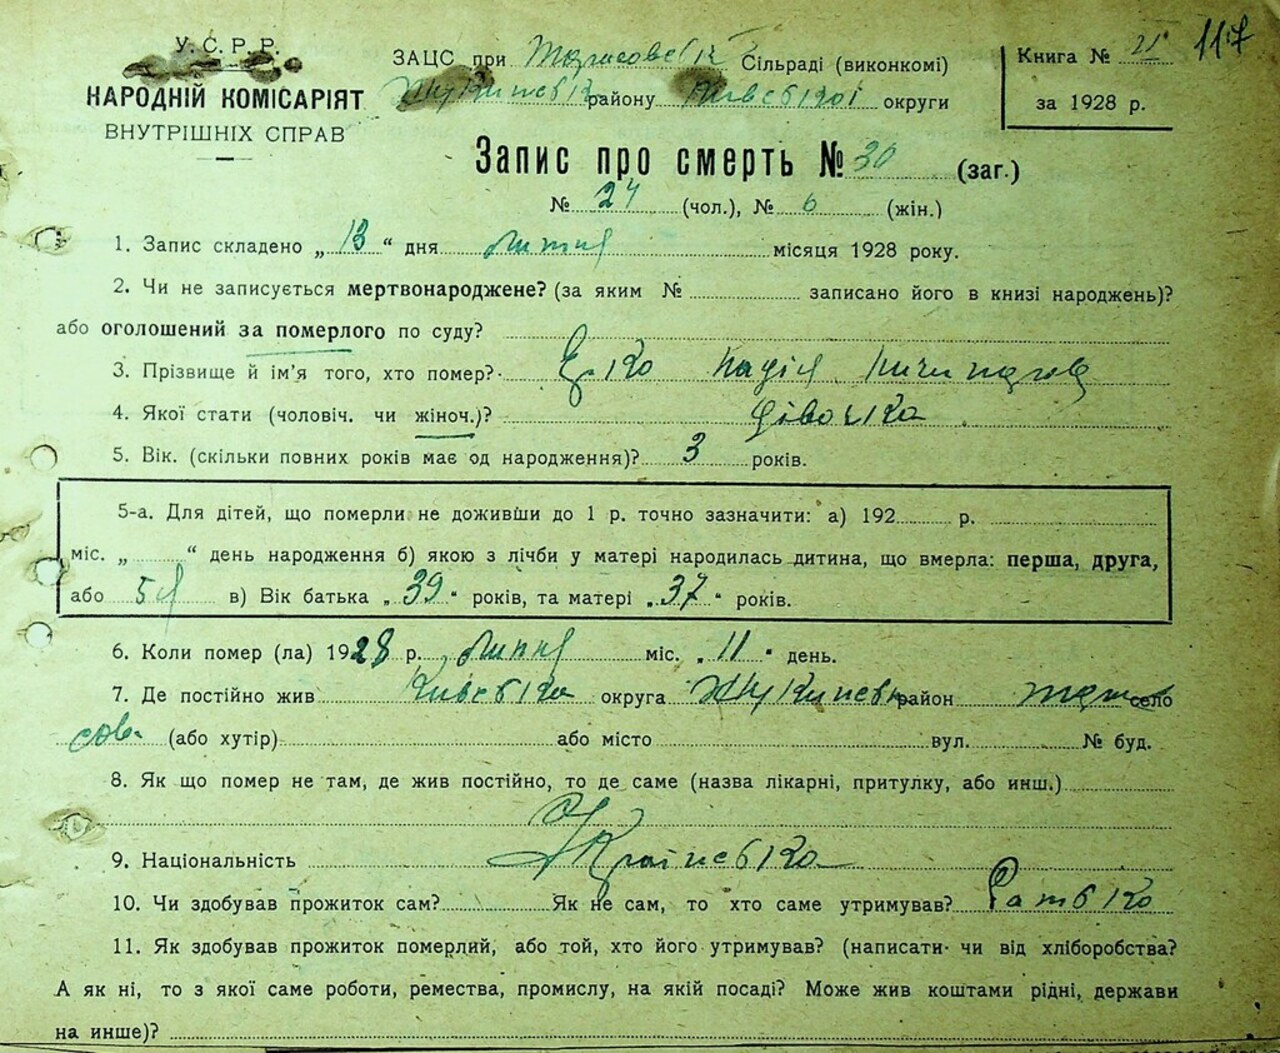 117
У.С.Р.Р.
НАРОДНІЙ КОМІСАРІЯТ
ВНУТРІШНІХ СПРАВ
ЗАЦС при Сільраді (виконкомі)
району Київської округи
Книга № 21
за 1928 р.
Запис про смерть № 30 (заг.)
№ 24 (чол.), № 6 (жін.)
1. Запис складено „ 13 “ дня липня місяця 1928 року.
2. Чи не записується мертвонароджене? (за яким № записано його в книзі народжень)?
або оголошений за померлого по суду?
3. Прізвище й ім’я того, хто помер? Надія
4. Якої стати (чоловіч. чи жіноч.)? дівочка
5. Вік. (скільки повних років має од народження)? 3 років.
5-а. Для дітей, що померли не доживши до 1 р. точно зазначити: а) 192 р.
міс. „ “ день народження б) якою з лічби у матері народилась дитина, що вмерла: перша, друга,
або 5я в) Вік батька „ 39 “ років, та матері „ 37 “ років.
6. Коли помер (ла) 1928 р. липня міс. „ 11 “ день.
7. Де постійно жив Київська округа район село
(або хутір) або місто вул. № буд.
8. Як що помер не там, де жив постійно, то де саме (назва лікарні, притулку, або инш.)
9. Національність Українська
10. Чи здобував прожиток сам? Як не сам, то хто саме утримував? Батько
11. Як здобував прожиток померлий, або той, хто його утримував? (написати чи від хліборобства?
А як ні, то з якої саме роботи, ремества, промислу, на якій посаді? Може жив коштами рідні, держави
на инше)?